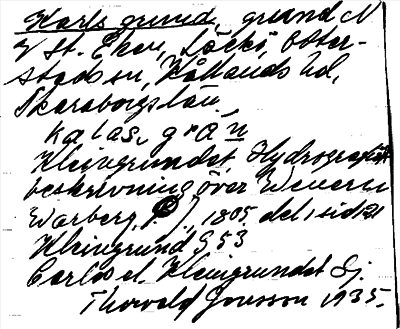 Karls grund, grund N
v St. Eken, Läckö, Otter-
stads sn, Kållands hd,
Skaraborgs län.
kalas, grå̄n
Kleingrundet, Hydrografisk
beskrivning över Wenern
Warberg, 1805 del 1 sid 21
Kleingrund G 53
Carlos el. Kleingrundet Sj.
Thorvald Jonsson 1935.